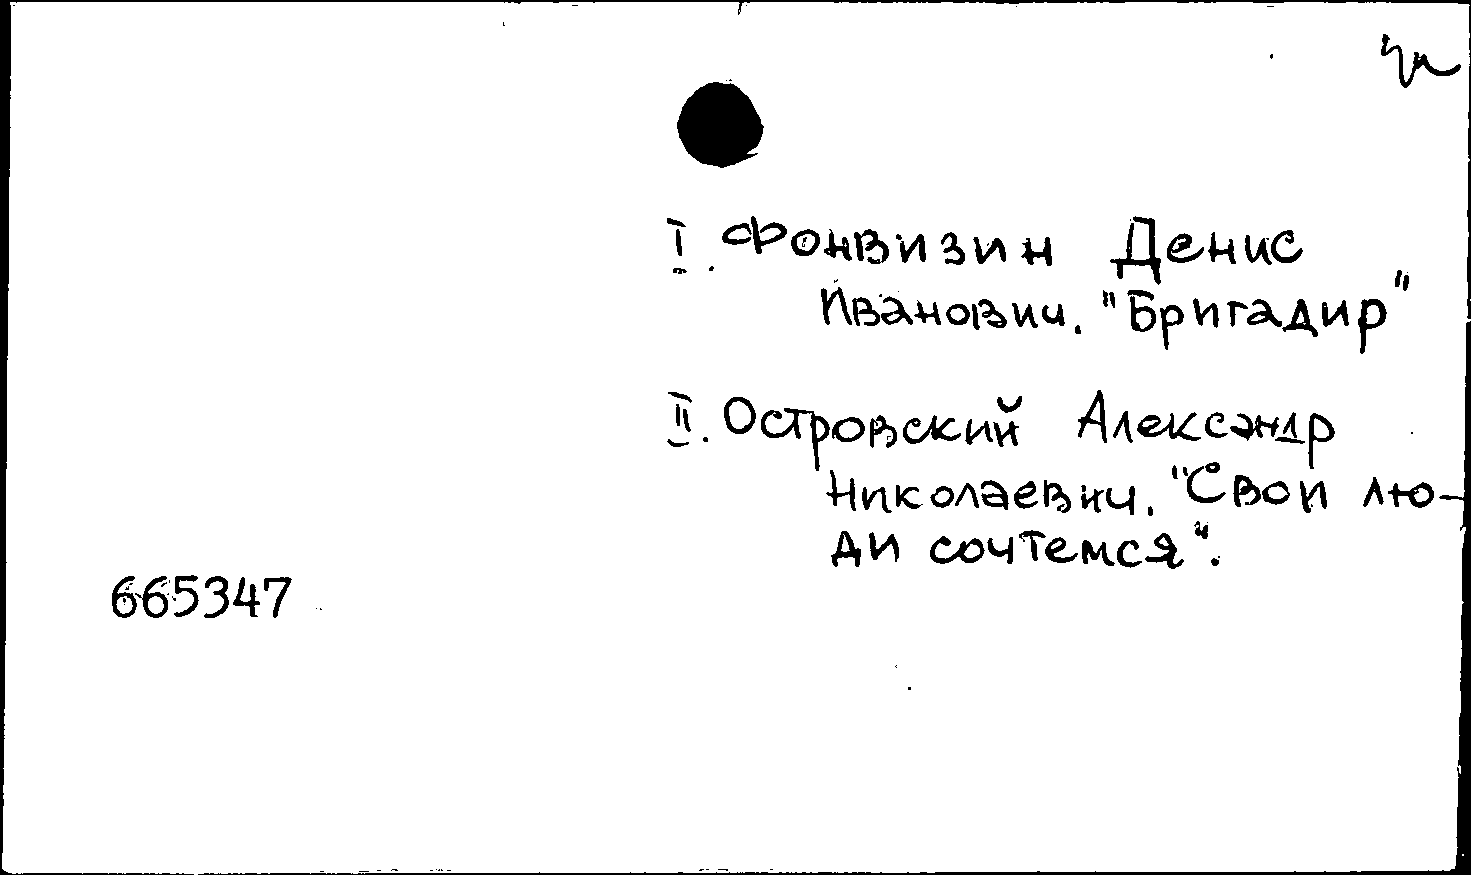 I. Фонвизин Денис
Иванович. "Бригадир"
II. Островский Александр
Николаевич. "Свои лю-
ди сочтемся".
665347